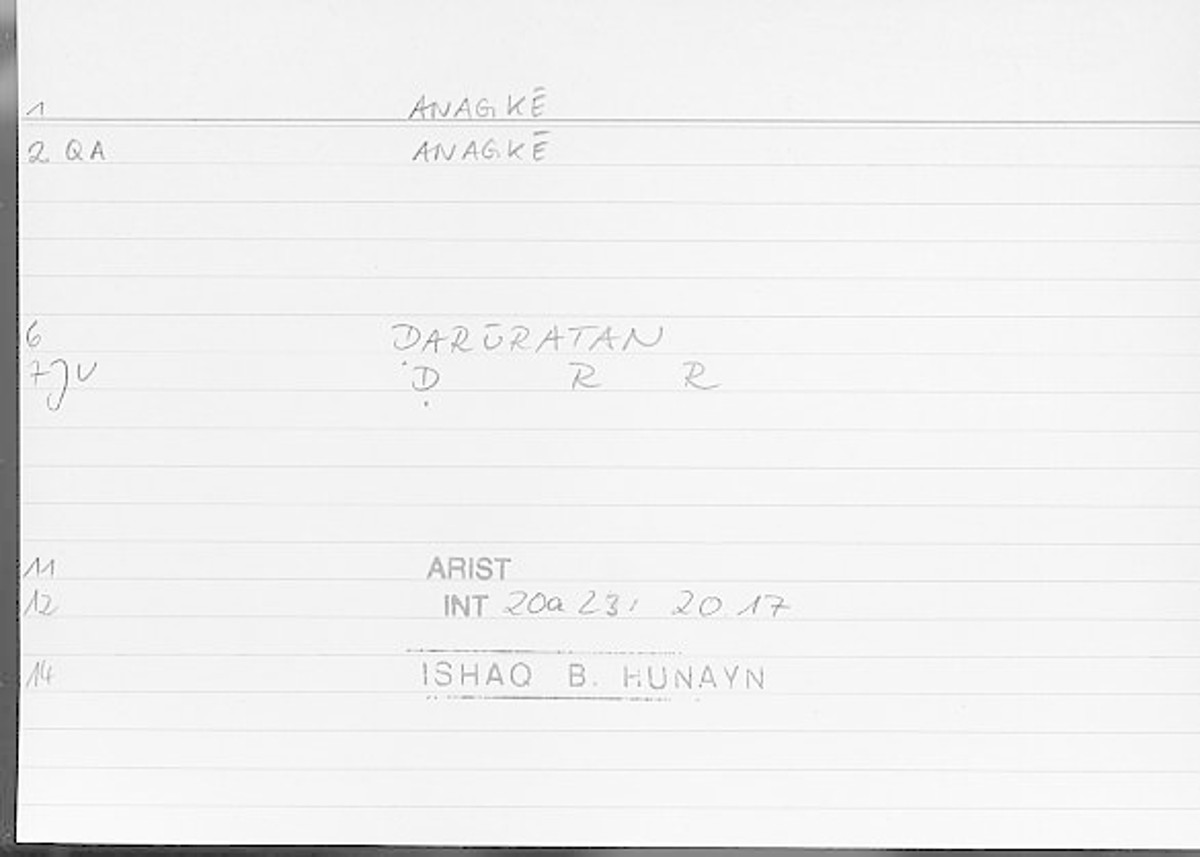 1 ANAGKĒ
2 QA ANAGKĒ
6 DARŪRATAN
7 JU Ḍ R R
11 ARIST
12 INT 20a 23, 20.17
14 ISHAQ B. HUNAYN